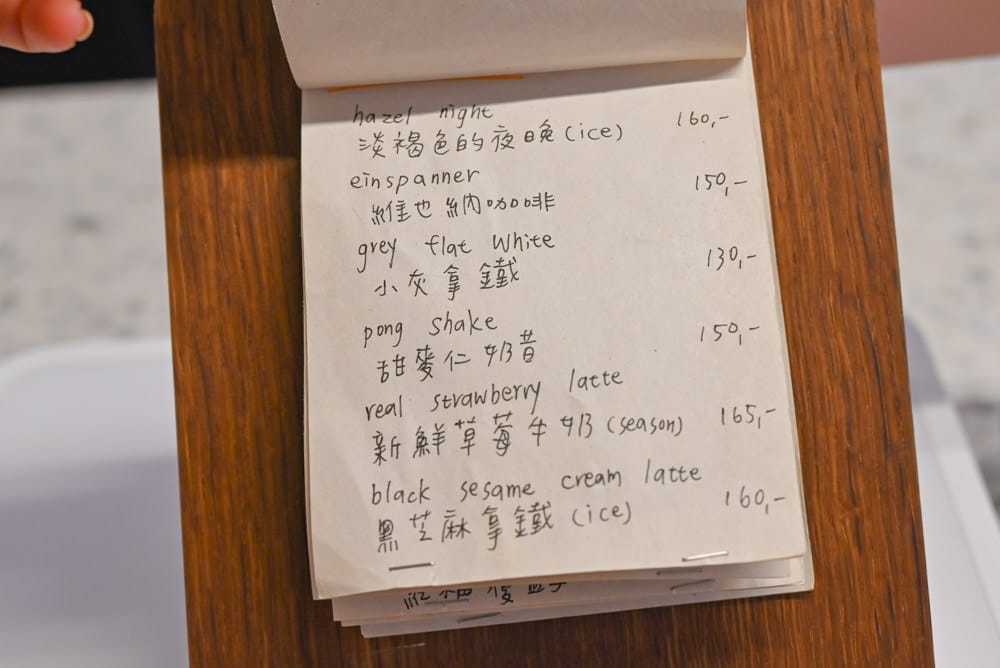 hazel night 160,-
淡褐色的夜晚(ice)
einspanner 150,-
維也納咖啡
grey flat white 130,-
小灰拿鐵
pong shake 150,-
甜麥仁奶昔
real strawberry latte
新鮮草莓牛奶(season) 165,-
black sesame cream latte 160,-
黑芝麻拿鐵(ice)